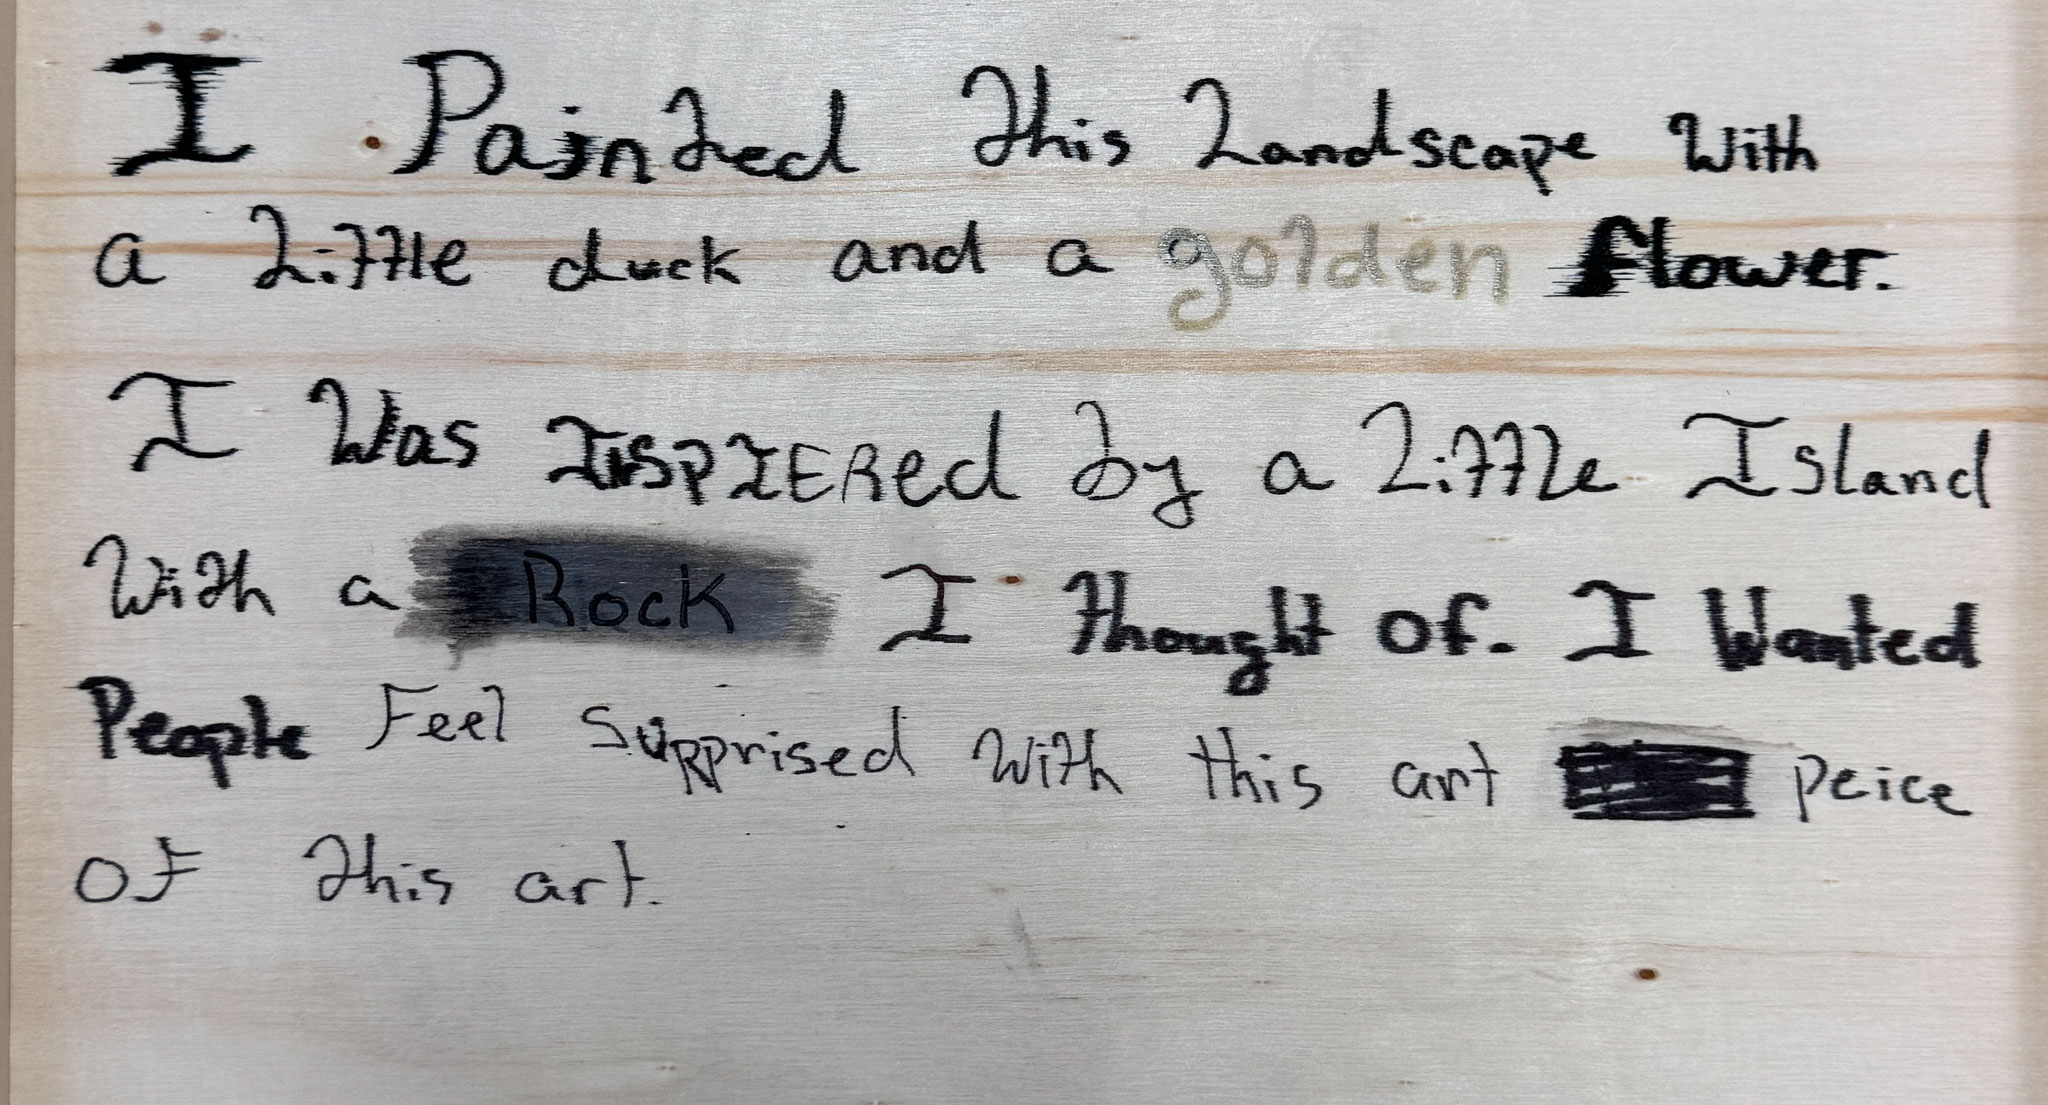 I Painted this Landscape With
a Little duck and a golden flower.
I Was InspIERed by a Little Island
With a Rock I thought of. I Wanted
People Feel Surprised With this art peice
of this art.